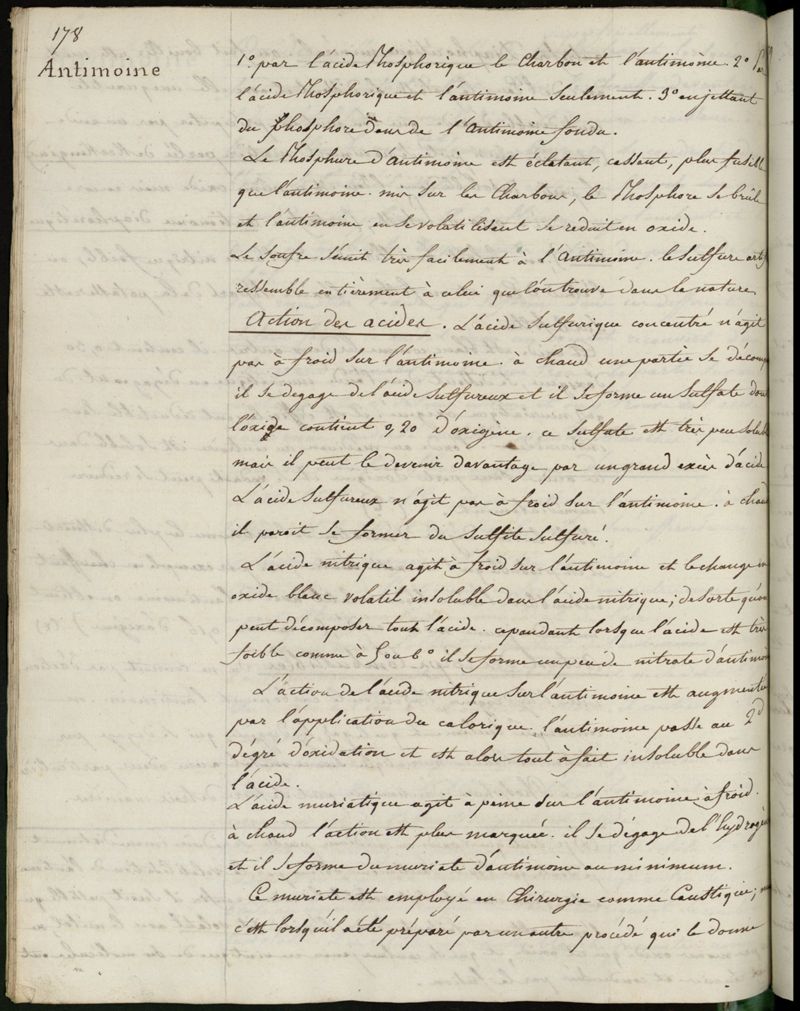 178
Antimoine
1° par l'acide Phosphorique le Charbon et l'antimoine. 2° Par
l'acide Phosphorique et l'antimoine seulement. 3° en jettant
du phosphore dans de l'antimoine fondu.
Le Phosphure d'antimoine est éclatant, cassant, plus fusible
que l'antimoine. mis sur les Charbons, le Phosphore se brûle
et l'antimoine en se volatilisant se reduit en oxide.
Le soufre s'unit très facilement à l'Antimoine. le sulfure artif
ressemble entièrement à celui que l'on trouve dans la nature
Action des acides. L'acide sulfurique concentré n'agit
pas à froid sur l'antimoine. à chaud une partie se décomp
il se degage de l'acide sulfureux et il se forme un sulfate dont
l'oxide contient 0,20 d'oxigène. ce sulfate est très peu soluble
mais il peut le devenir davantage par un grand excès d'acide
L'acide sulfureux n'agit pas à froid sur l'antimoine. à chaud
il paroit se former du sulfite sulfuré.
L'acide nitrique agit à froid sur l'antimoine et le change en
oxide blanc volatil insoluble dans l'acide nitrique; de sorte qu'on
peut décomposer tout l'acide. cependant lorsque l'acide est très
foible comme à 5 ou 6° il se forme un peu de nitrate d'antimoin
L'action de l'acide nitrique sur l'antimoine est augmentée
par l'application du calorique. l'antimoine passe au 2d
dégré d'oxidation et est alors tout à fait insoluble dans
l'acide.
L'acide muriatique agit à peine sur l'antimoine à froid.
à chaud l'action est plus marquée. il se dégage de l'hydrogèn
et il se forme du muriate d'antimoine au minimum.
Ce muriate est employé en Chirurgie comme Caustique;
c'est lorsqu'il a été préparé par un autre procédé qui le donne